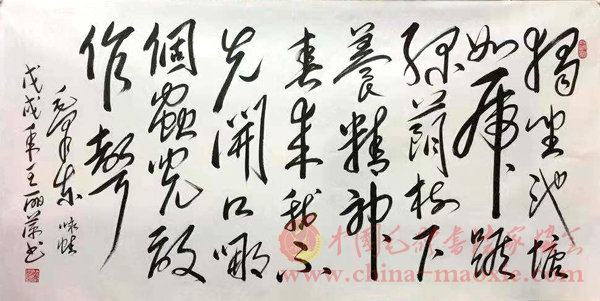 獨坐池塘
如虎踞
绿蔭树下
養精神
春来我不
先開口哪
個蟲兒敢
作聲
毛澤东 咏蛙
戊戌年王丽书
www.china-maoxie.com